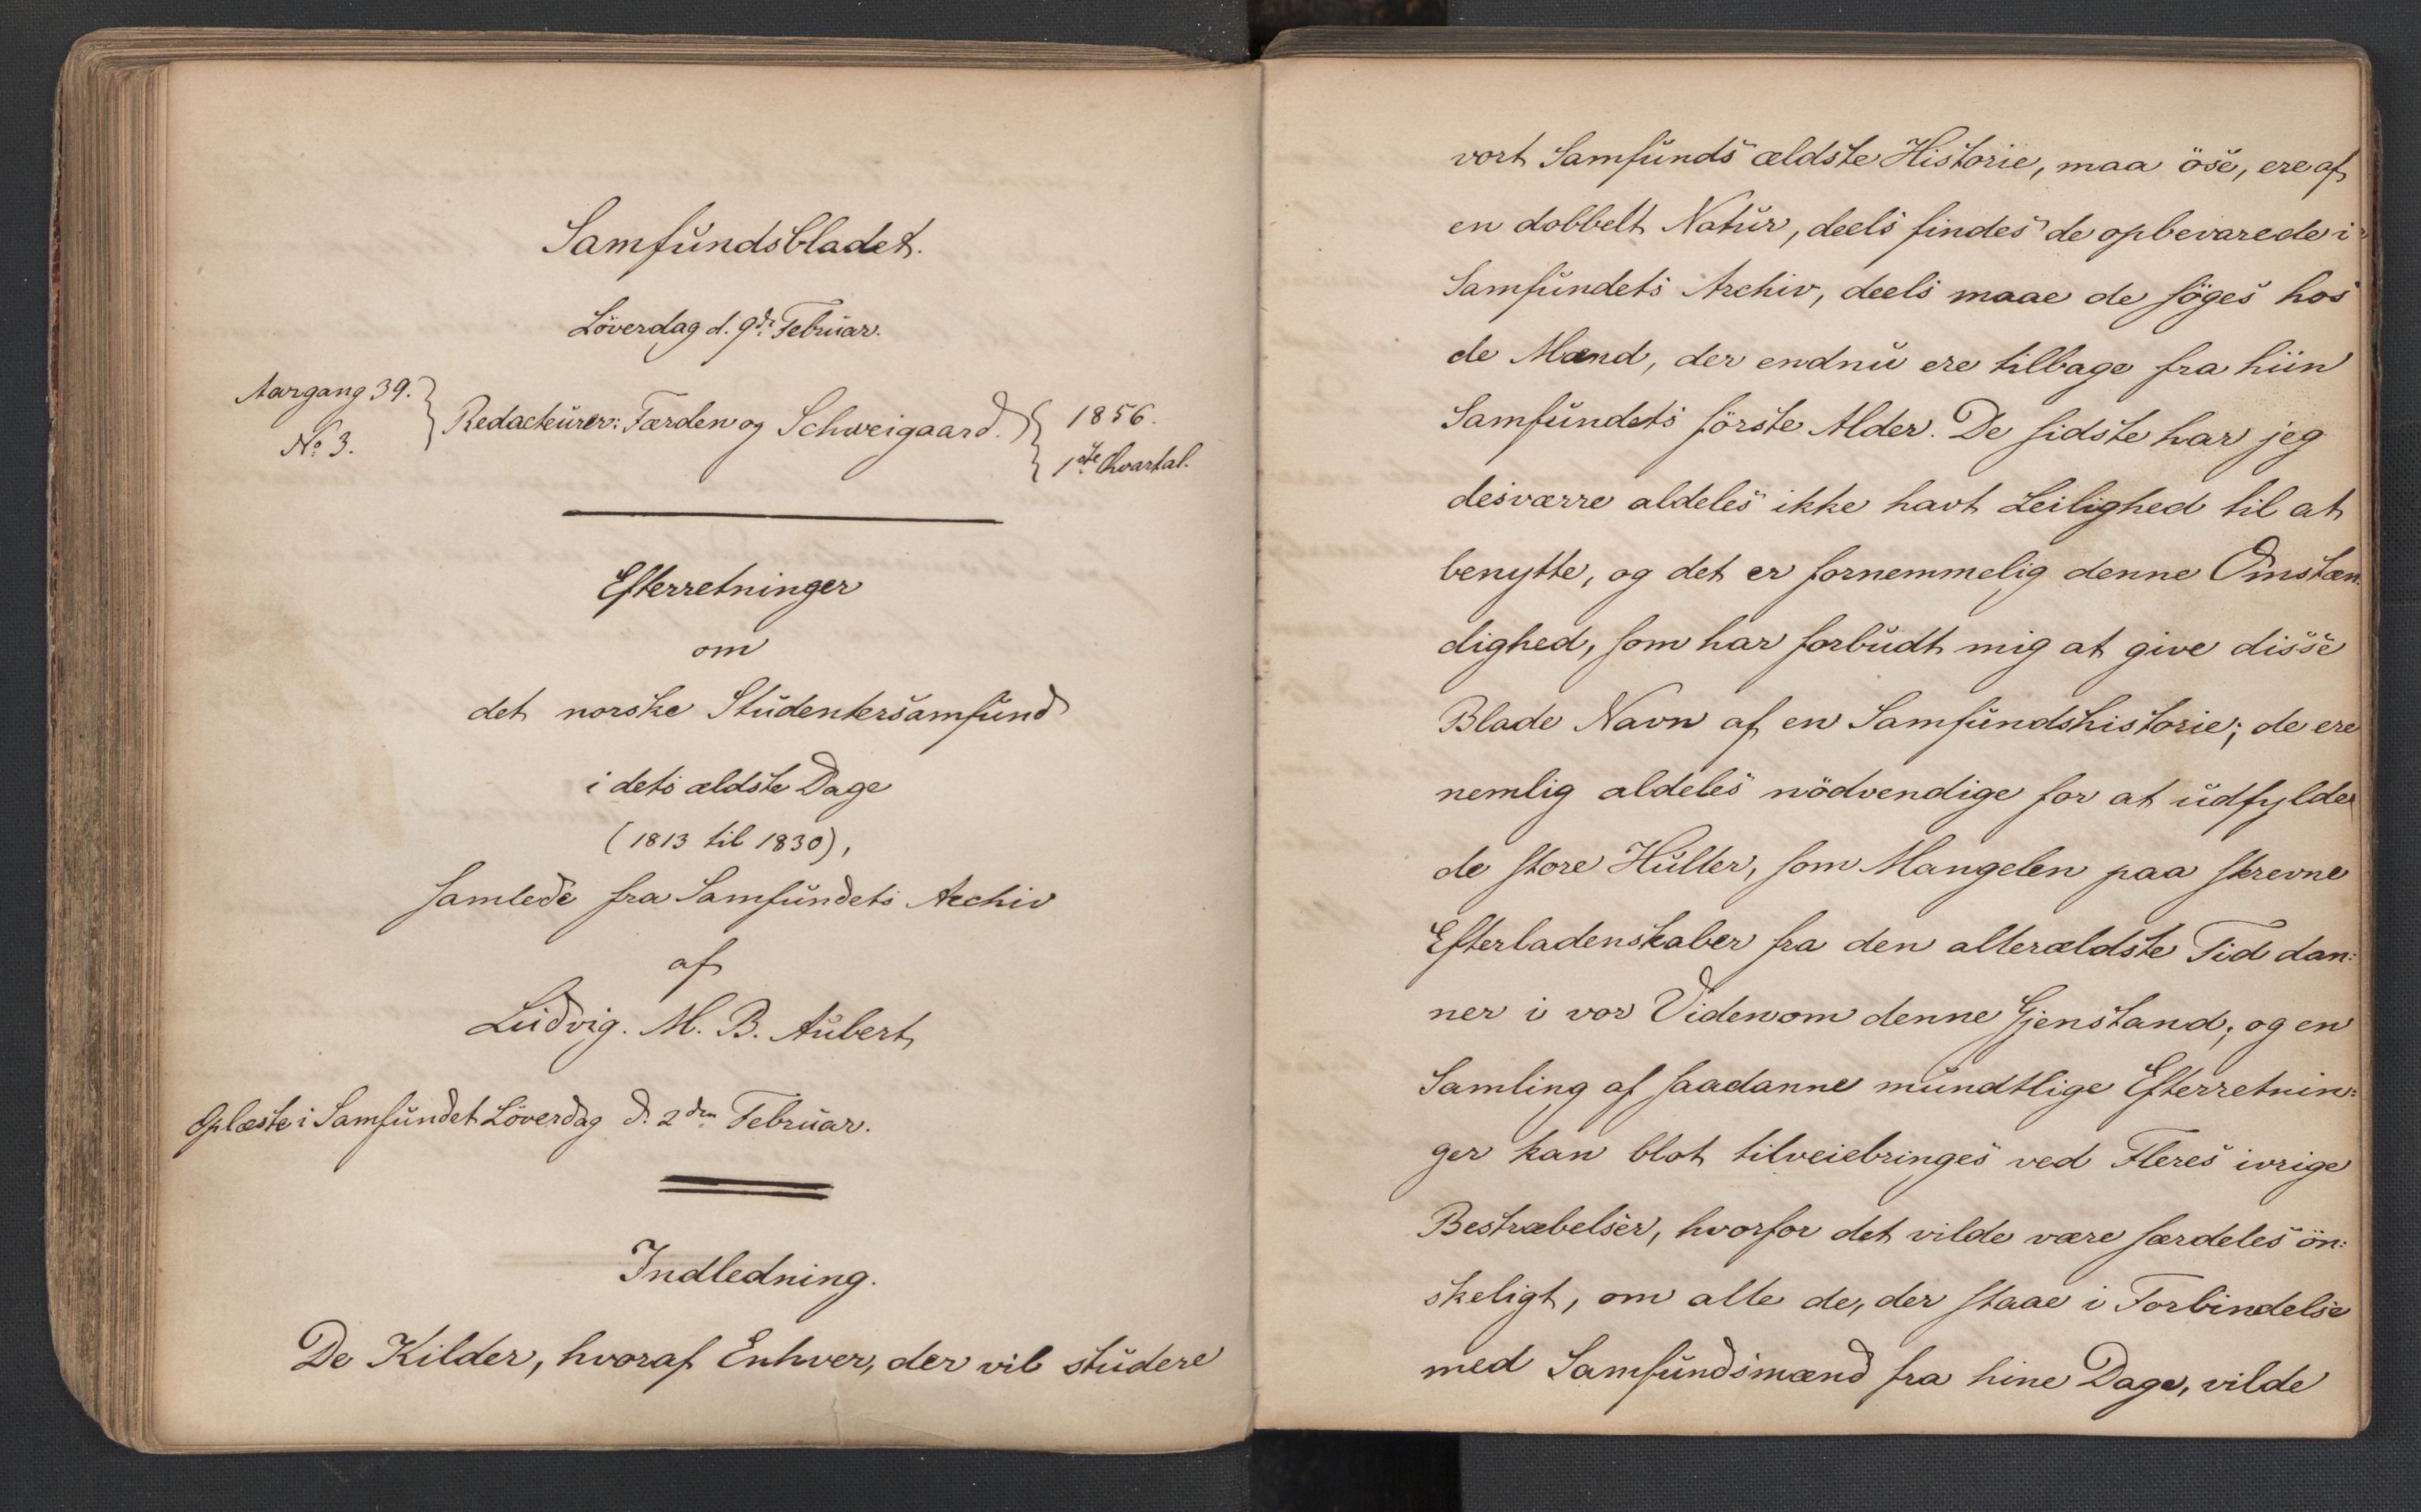 Samfundsbladet.
Löverdag d. 9de Februar.
Aargang 39.
No 3.
Redacteurer: Færden og Schweigaard.
1856.
1ste Qvartal.
Efterretninger
om
det norske Studentersamfund
i dets ældste Dage
(1813 til 1830),
samlede fra Samfundets Archiv
af
Ludvig. M. B. Aubert,
Oplæste i Samfundet Löverdag d. 2den Februar.
Indledning.
De Kilder, hvoraf Enhver, der vil studere
vort Samfunds ældste Historie, maa öse, ere af
en dobbelt Natur, deels findes de opbevarede i
Samfundets Archiv, deels maae de söges hos
de Mænd, der endnu ere tilbage fra hiin
Samfundets förste Alder. De sidste har jeg
desværre aldeles ikke havt Leilighed til at
benytte, og det er fornemmelig denne Omstæn-
dighed, som har forbudt mig at give disse
Blade Navn af en Samfundshistorie; de ere
nemlig aldeles nödvendige for at udfylde
de store Huller, som Mangelen paa skrevne
Efterladenskaber fra den allerældste Tid dan:
ner i vor Viden om denne Gjenstand; og en
Samling af saadanne mundtlige Efterretnin:
ger kan blot tilveiebringes ved Fleres ivrige
Bestræbelser, hvorfor det vilde være særdeles ön:
skeligt, om alle de, der staae i Forbindelse
med Samfundsmænd fra hine Dage, vilde